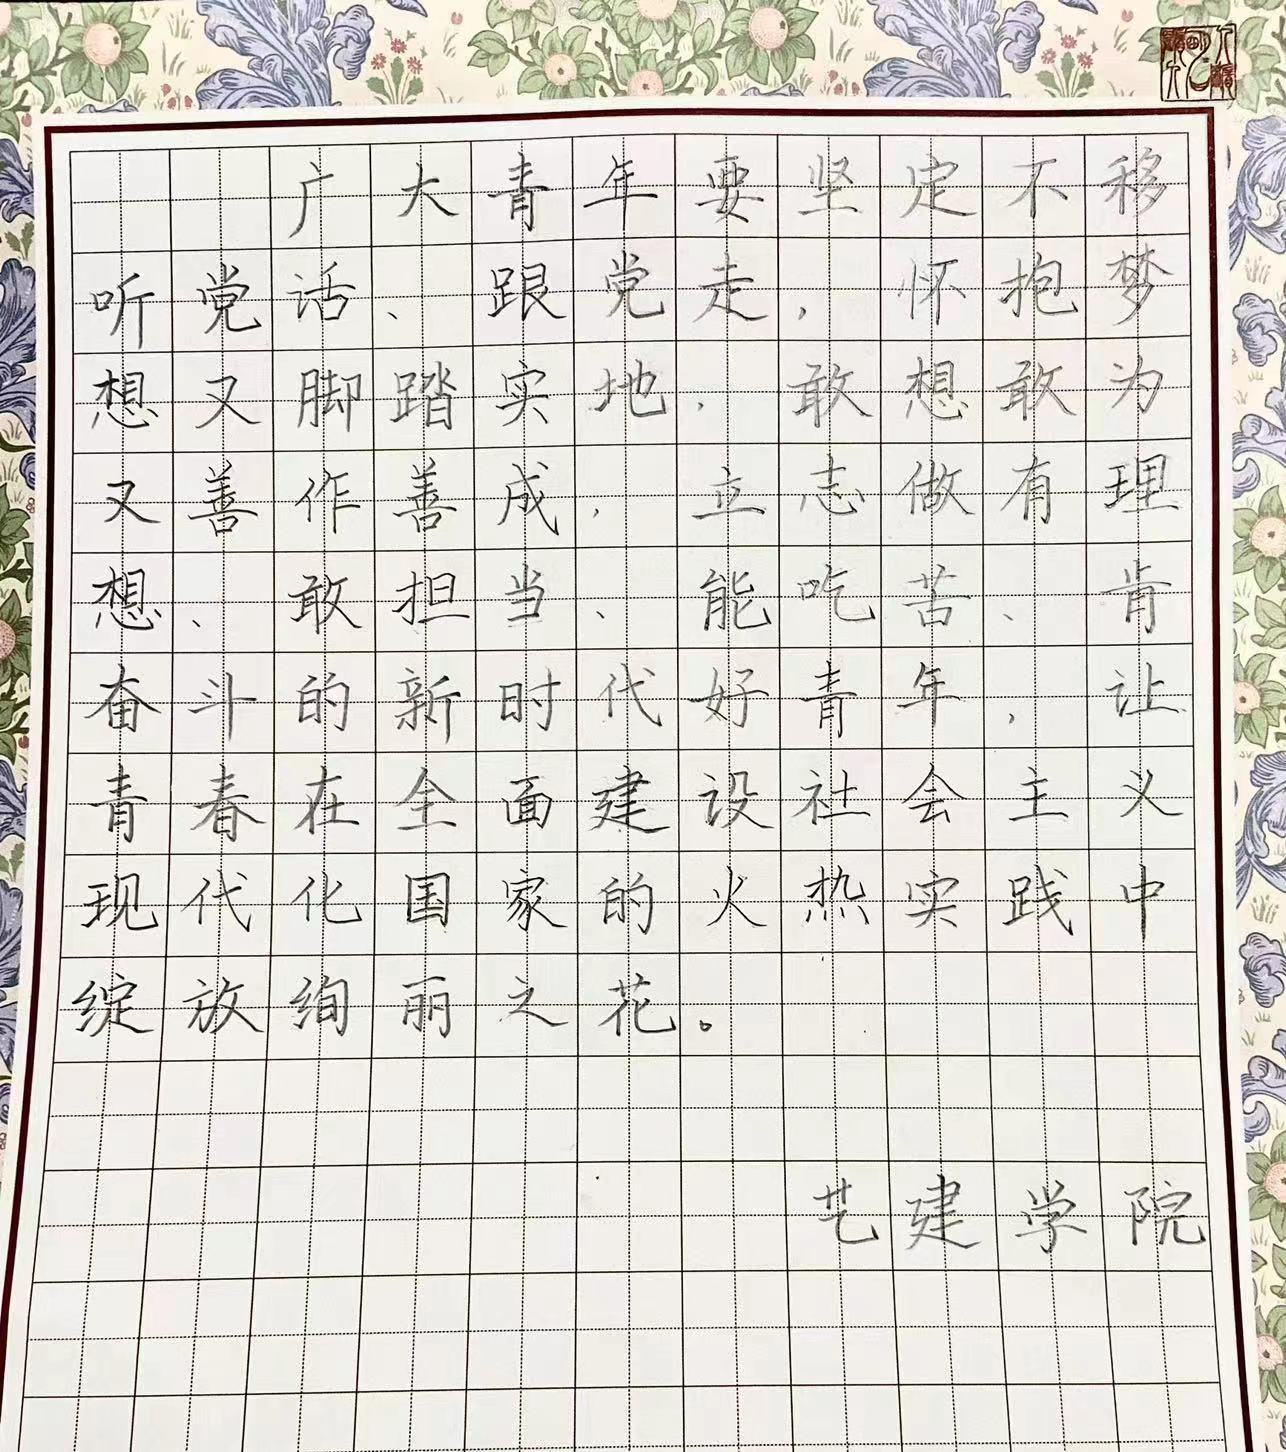 广大青年要坚定不移
听党话、跟党走，怀抱梦
想又脚踏实地，敢想敢为
又善作善成，立志做有理
想、敢担当、能吃苦、肯
奋斗的新时代好青年，让
青春在全面建设社会主义
现代化国家的火热实践中
绽放绚丽之花。
艺建学院